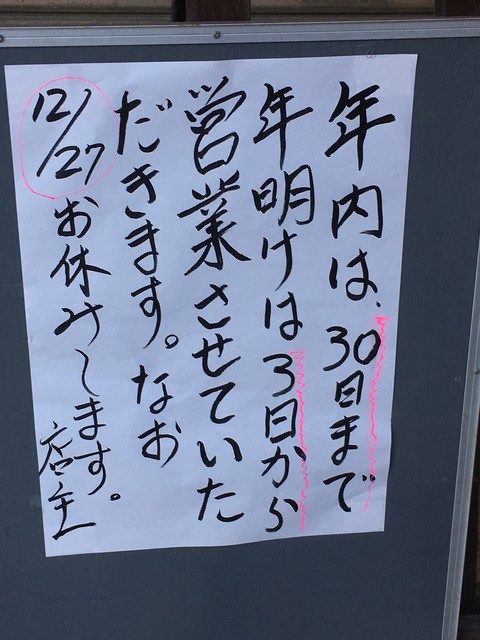 年内は、30日まで
年明けは3日から
営業させていた
だきます。なお
12/27お休みします。
店主